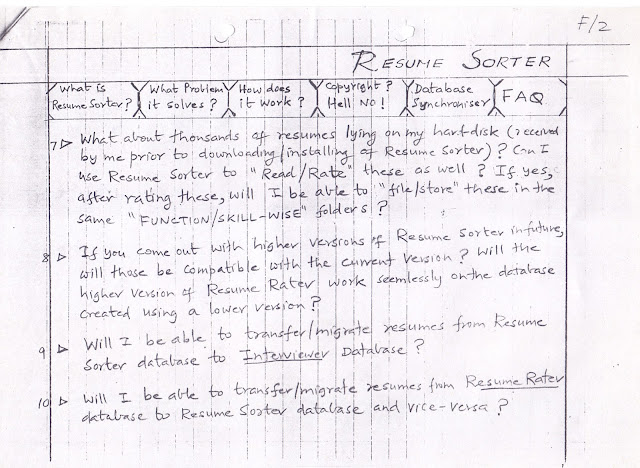 F/2
RESUME SORTER
What is Resume Sorter?
What Problem it solves?
How does it work?
Copyright? Hell No!
Database Synchroniser
FAQ
7 ▷ What about thousands of resumes lying on my hard disk (received
by me prior to downloading/installing of Resume Sorter)? Can I
use Resume Sorter to "Read/Rate" these as well? If yes,
after rating these, will I be able to "file/store" these in the
same "FUNCTION/SKILL-WISE" folders?
8 ▷ If you come out with higher versions of Resume Sorter in future,
will those be compatible with the current version? Will the
higher version of Resume Rater work seemlessly on the database
created using a lower version?
9 ▷ Will I be able to transfer/migrate resumes from Resume
Sorter database to Interviewer Database?
10 ▷ Will I be able to transfer/migrate resumes from Resume Rater
database to Resume Sorter database and vice-versa?